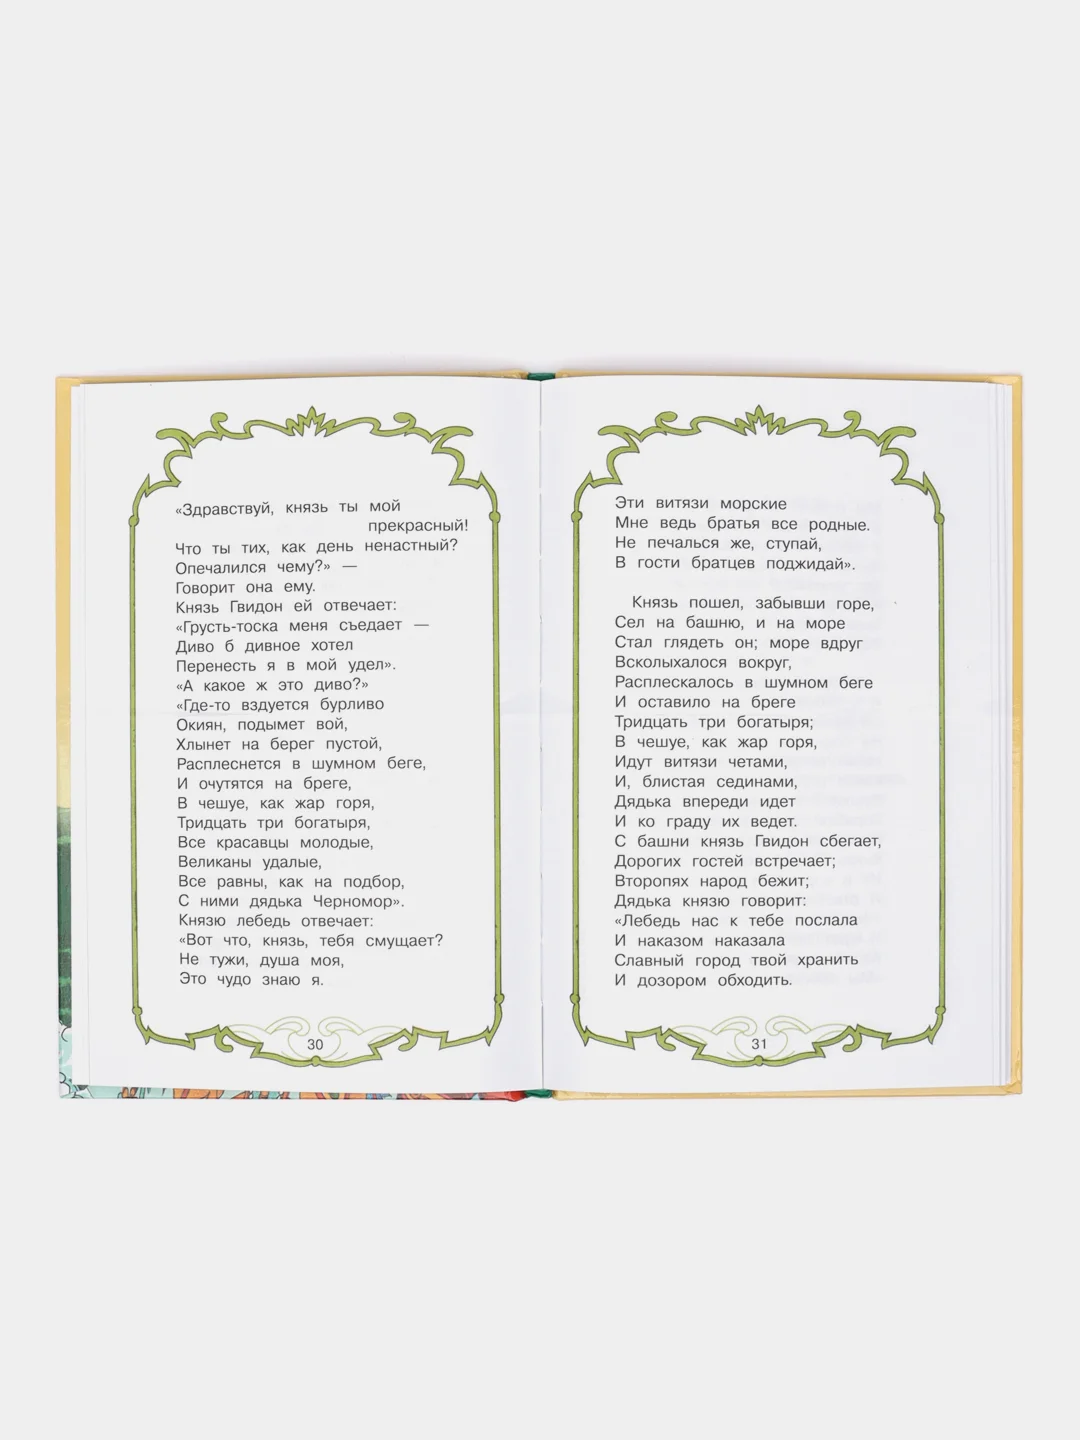 «Здравствуй, князь ты мой
прекрасный!
Что ты тих, как день ненастный?
Опечалился чему?» —
Говорит она ему.
Князь Гвидон ей отвечает:
«Грусть-тоска меня съедает —
Диво б дивное хотел
Перенесть я в мой удел».
«А какое ж это диво?»
«Где-то вздуется бурливо
Окиян, подымет вой,
Хлынет на берег пустой,
Расплеснется в шумном беге,
И очутятся на бреге,
В чешуе, как жар горя,
Тридцать три богатыря,
Все красавцы молодые,
Великаны удалые,
Все равны, как на подбор,
С ними дядька Черномор».
Князю лебедь отвечает:
«Вот что, князь, тебя смущает?
Не тужи, душа моя,
Это чудо знаю я.
30
Эти витязи морские
Мне ведь братья все родные.
Не печалься же, ступай,
В гости братцев поджидай».
Князь пошел, забывши горе,
Сел на башню, и на море
Стал глядеть он; море вдруг
Всколыхалося вокруг,
Расплескалось в шумном беге
И оставило на бреге
Тридцать три богатыря;
В чешуе, как жар горя,
Идут витязи четами,
И, блистая сединами,
Дядька впереди идет
И ко граду их ведет.
С башни князь Гвидон сбегает,
Дорогих гостей встречает;
Второпях народ бежит;
Дядька князю говорит:
«Лебедь нас к тебе послала
И наказом наказала
Славный город твой хранить
И дозором обходить.
31